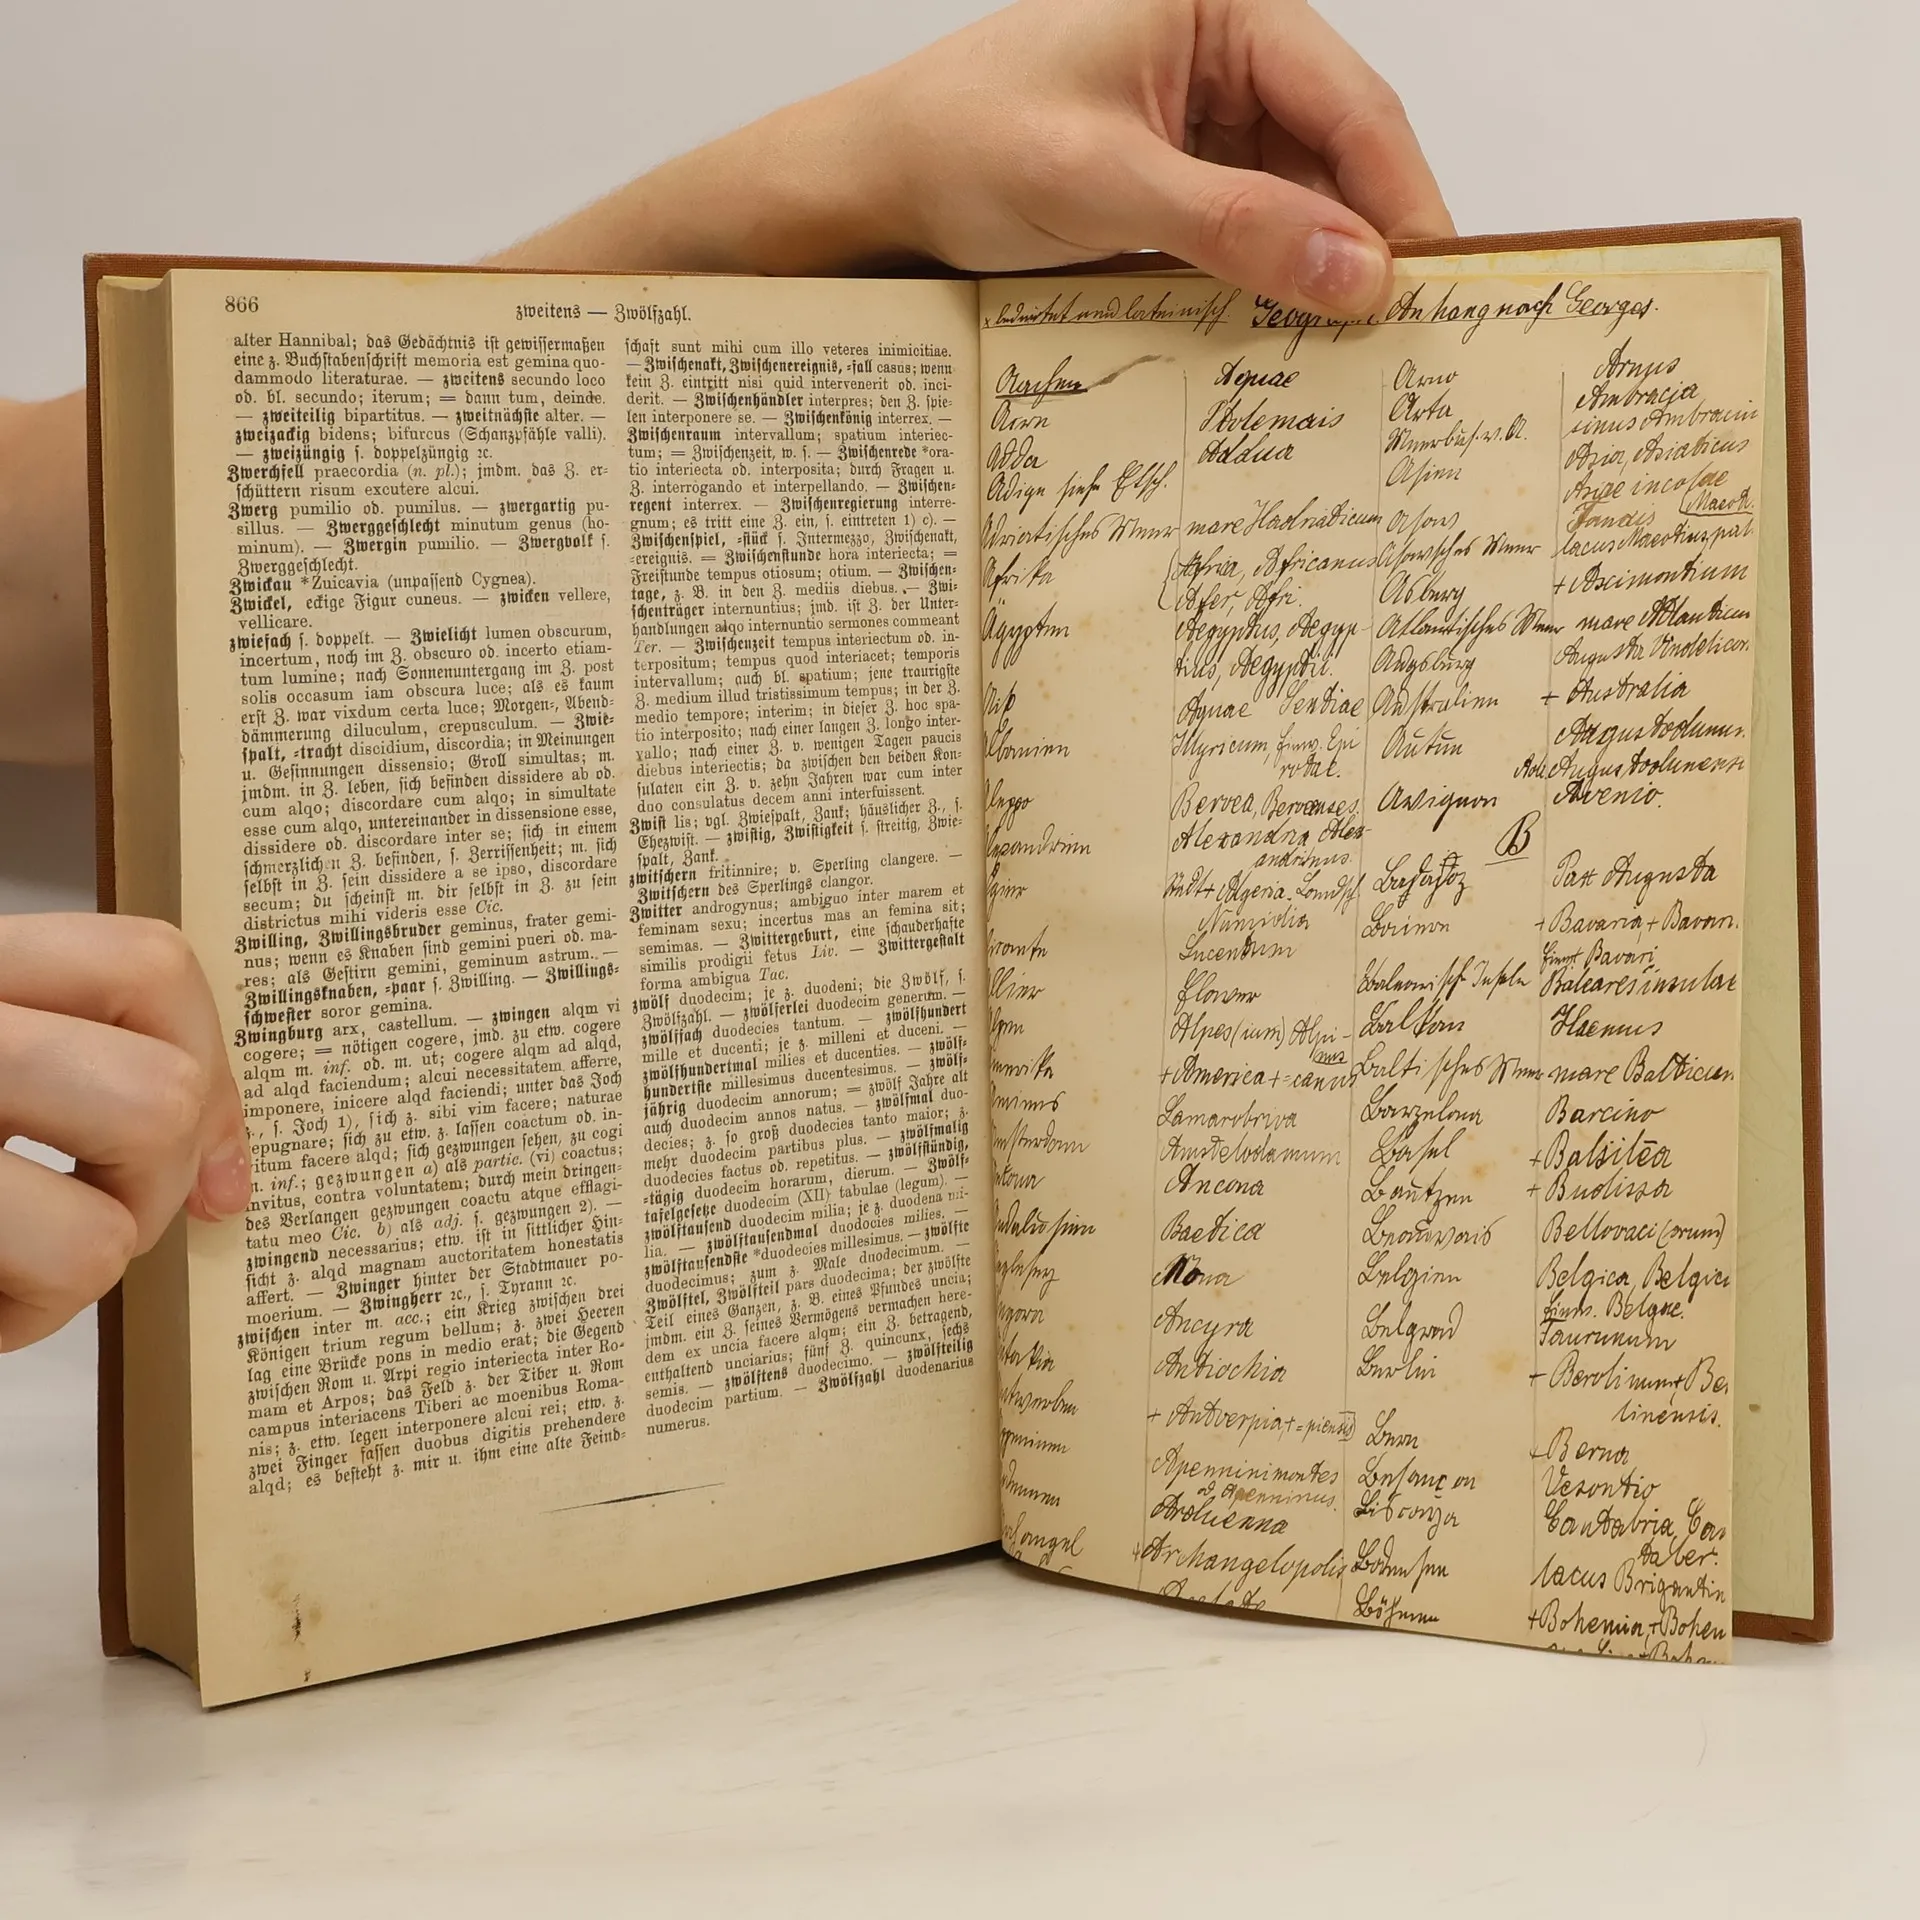 866
zweitens — Zwölfzahl.
alter Hannibal; das Gedächtnis ist gewissermaßen
eine z. Buchstabenschrift memoria est gemina quo-
dammodo literaturae. — zweitens secundo loco
od. bl. secundo; iterum; = dann tum, deinde.
— zweiteilig bipartitus. — zweitnächste alter. —
zweizackig bidens; bifurcus (Schanzpfähle valli).
— zweizüngig s. doppelzüngig ꝛc.
Zwerchfell praecordia (n. pl.); jmdm. das Z. er-
schüttern risum excutere alcui.
Zwerg pumilio od. pumilus. — zwergartig pu-
sillus. — Zwerggeschlecht minutum genus (ho-
minum). — Zwergin pumilio. — Zwergvolk s.
Zwerggeschlecht.
Zwickau *Zuicavia (unpassend Cygnea).
Zwickel, eckige Figur cuneus. — zwicken vellere,
vellicare.
zwiefach s. doppelt. — Zwielicht lumen obscurum,
incertum, noch im Z. obscuro od. incerto etiam-
tum lumine; nach Sonnenuntergang im Z. post
solis occasum iam obscura luce; als es kaum
erst Z. war vixdum certa luce; Morgen-, Abend-
dämmerung diluculum, crepusculum. — Zwie-
spalt, -tracht discidium, discordia; in Meinungen
u. Gesinnungen dissensio; Groll simultas; m.
jmdm. in Z. leben, sich befinden dissidere ab od.
cum alqo; discordare cum alqo; in simultate
esse cum alqo, untereinander in dissensione esse,
dissidere od. discordare inter se; sich in einem
schmerzlichen Z. befinden, s. Zerrissenheit; m. sich
selbst in Z. sein dissidere a se ipso, discordare
secum; du scheinst m. dir selbst in Z. zu sein
districtus mihi videris esse Cic.
Zwilling, Zwillingsbruder geminus, frater gemi-
nus; wenn es Knaben sind gemini pueri od. ma-
res; als Gestirn gemini, geminum astrum. —
Zwillingsknaben, -paar s. Zwilling. — Zwillings-
schwester soror gemina.
Zwingburg arx, castellum. — zwingen alqm vi
cogere; = nötigen cogere, jmd. zu etw. cogere
alqm m. inf. od. m. ut; cogere alqm ad alqd,
ad alqd faciendum; alcui necessitatem afferre,
imponere, inicere alqd faciendi; unter das Joch
z., s. Joch 1), sich z. sibi vim facere; naturae
repugnare; sich zu etw. z. lassen coactum od. in-
vitum facere alqd; sich gezwungen sehen, zu cogi
m. inf.; gezwungen a) als partic. (vi) coactus;
invitus, contra voluntatem; durch mein dringen-
des Verlangen gezwungen coactu atque efflagi-
tatu meo Cic. b) als adj. s. gezwungen 2). —
zwingend necessarius; etw. ist in sittlicher Hin-
sicht z. alqd magnam auctoritatem honestatis
affert. — Zwinger hinter der Stadtmauer po-
moerium. — Zwingherr ꝛc., s. Tyrann ꝛc.
zwischen inter m. acc.; ein Krieg zwischen drei
Königen trium regum bellum; z. zwei Heeren
lag eine Brücke pons in medio erat; die Gegend
zwischen Rom u. Arpi regio interiecta inter Ro-
mam et Arpos; das Feld z. der Tiber u. Rom
campus interiacens Tiberi ac moenibus Roma-
nis; z. etw. legen interponere alcui rei; etw. z.
zwei Finger fassen duobus digitis prehendere
alqd; es besteht z. mir u. ihm eine alte Feind-
schaft sunt mihi cum illo veteres inimicitiae.
— Zwischenakt, Zwischenereignis, -fall casus; wenn
kein Z. eintritt nisi quid intervenerit od. inci-
derit. — Zwischenhändler interpres; den Z. spie-
len interponere se. — Zwischenkönig interrex. —
Zwischenraum intervallum; spatium interiec-
tum; = Zwischenzeit, w. s. — Zwischenrede *ora-
tio interiecta od. interposita; durch Fragen u.
Z. interrogando et interpellando. — Zwischen-
regent interrex. — Zwischenregierung interre-
gnum; es tritt eine Z. ein, s. eintreten 1) c). —
Zwischenspiel, -stück s. Intermezzo, Zwischenakt,
-ereignis. — Zwischenstunde hora interiecta; =
Freistunde tempus otiosum; otium. — Zwischen-
tage, z. B. in den Z. mediis diebus. — Zwi-
schenträger internuntius; jmd. ist Z. der Unter-
handlungen alqo internuntio sermones commeant
Ter. — Zwischenzeit tempus interiectum od. in-
terpositum; tempus quod interiacet; temporis
intervallum; auch bl. spatium; jene traurigste
Z. medium illud tristissimum tempus; in der Z.
medio tempore; interim; in dieser Z. hoc spa-
tio interposito; nach einer langen Z. longo inter-
vallo; nach einer Z. v. wenigen Tagen paucis
diebus interiectis; da zwischen den beiden Kon-
sulaten ein Z. v. zehn Jahren war cum inter
duo consulatus decem anni interfuissent.
Zwist lis; vgl. Zwiespalt, Zank; häuslicher Z., s.
Ehezwist. — zwistig, Zwistigkeit s. streitig, Zwie-
spalt, Zank.
zwitschern fritinnire; v. Sperling clangere. —
Zwitschern des Sperlings clangor.
Zwitter androgynus; ambiguo inter marem et
feminam sexu; incertus mas an femina sit;
semimas. — Zwittergeburt, eine schauderhafte
similis prodigii fetus Liv. — Zwittergestalt
forma ambigua Tac.
zwölf duodecim; je z. duodeni; die Zwölf, s.
Zwölfzahl. — zwölferlei duodecim generum. —
zwölffach duodecies tantum. — zwölfhundert
mille et ducenti; je z. milleni et duceni. —
zwölfhundertmal milies et ducenties. — zwölf-
hundertste millesimus ducentesimus. — zwölf-
jährig duodecim annorum; = zwölf Jahre alt
auch duodecim annos natus. — zwölfmal duo-
decies; z. so groß duodecies tanto maior; z.
mehr duodecim partibus plus. — zwölfmalig
duodecies factus od. repetitus. — zwölfstündig,
-tägig duodecim horarum, dierum. — Zwölf-
tafelgesetze duodecim (XII) tabulae (legum). —
zwölftausend duodecim milia; je z. duodena mi-
lia. — zwölftausendmal duodecies milies. —
zwölftausendste *duodecies millesimus. — zwölfte
duodecimus; zum z. Male duodecimum. —
Zwölftel, Zwölfteil pars duodecima; der zwölfte
Teil eines Ganzen, z. B. eines Pfundes uncia;
jmdm. ein Z. seines Vermögens vermachen here-
dem ex uncia facere alqm; ein Z. betragend,
enthaltend unciarius; fünf Z. quincunx, sechs
semis. — zwölftens duodecimo. — zwölfteilig
duodecim partium. — Zwölfzahl duodenarius
numerus.
Anhang nach Georges.
Aachen Aquae
Ptolemais
Adda Addua
Adige siehe Etsch.
Adriatisches Meer mare Hadriaticum
Afrika Africa, Africanus
Afer, Afri.
Ägypten Aegyptus, Aegyp-
tius, Aegyptii.
Aix Aquae Sextiae
Illyricum, Einw. Epi
rotae.
Beroea, Beroeenses.
Alexandria Alex-
andrinus.
Stadt + Algeria. Landsch.
Numidia
Lucentum
Elaver
Alpes (ium) Alpi-
nus
+ America + = canus
Samarobriva
Amstelodamum
Ancona
Baetica
Mona
Ancyra
Antiochia
+ Antverpia, + = piensis
Apennini montes
od. Apenninus.
Arduenna
+ Archangelopolis
Arno Arnus
Arta Ambracia
Meerbus. v. A. sinus Ambracius
Asien Asia, Asiaticus
Asiae incolae
Asow Tanais
Asowsches Meer lacus Maeotius, pal.
Asburg + Ascimontium
Atlantisches Meer mare Atlanticum
Augsburg Augusta Vindelicor.
Australien + Australia
Autun Augustodunum.
Adi. Augustodunensis
Avignon Avenio.
B
Badajoz Pax Augusta
Baiern + Bavaria, + Bavari.
Einw. Bavari
Balearische Inseln Baleares insulae
Balkan Haemus
Baltisches Meer mare Balticum
Barzelona Barcino
Basel + Basilea
Bautzen + Budissa
Beauvais Bellovaci (orum)
Belgien Belgica, Belgica
Einw. Belgae.
Belgrad Taurunum
Berlin + Berolinum + Be
linensis.
Bern + Berna
Besançon Vesontio
Biscaya Cantabria, Can
taber.
Bodensee lacus Brigantin
Böhmen + Bohemia, + Bohem